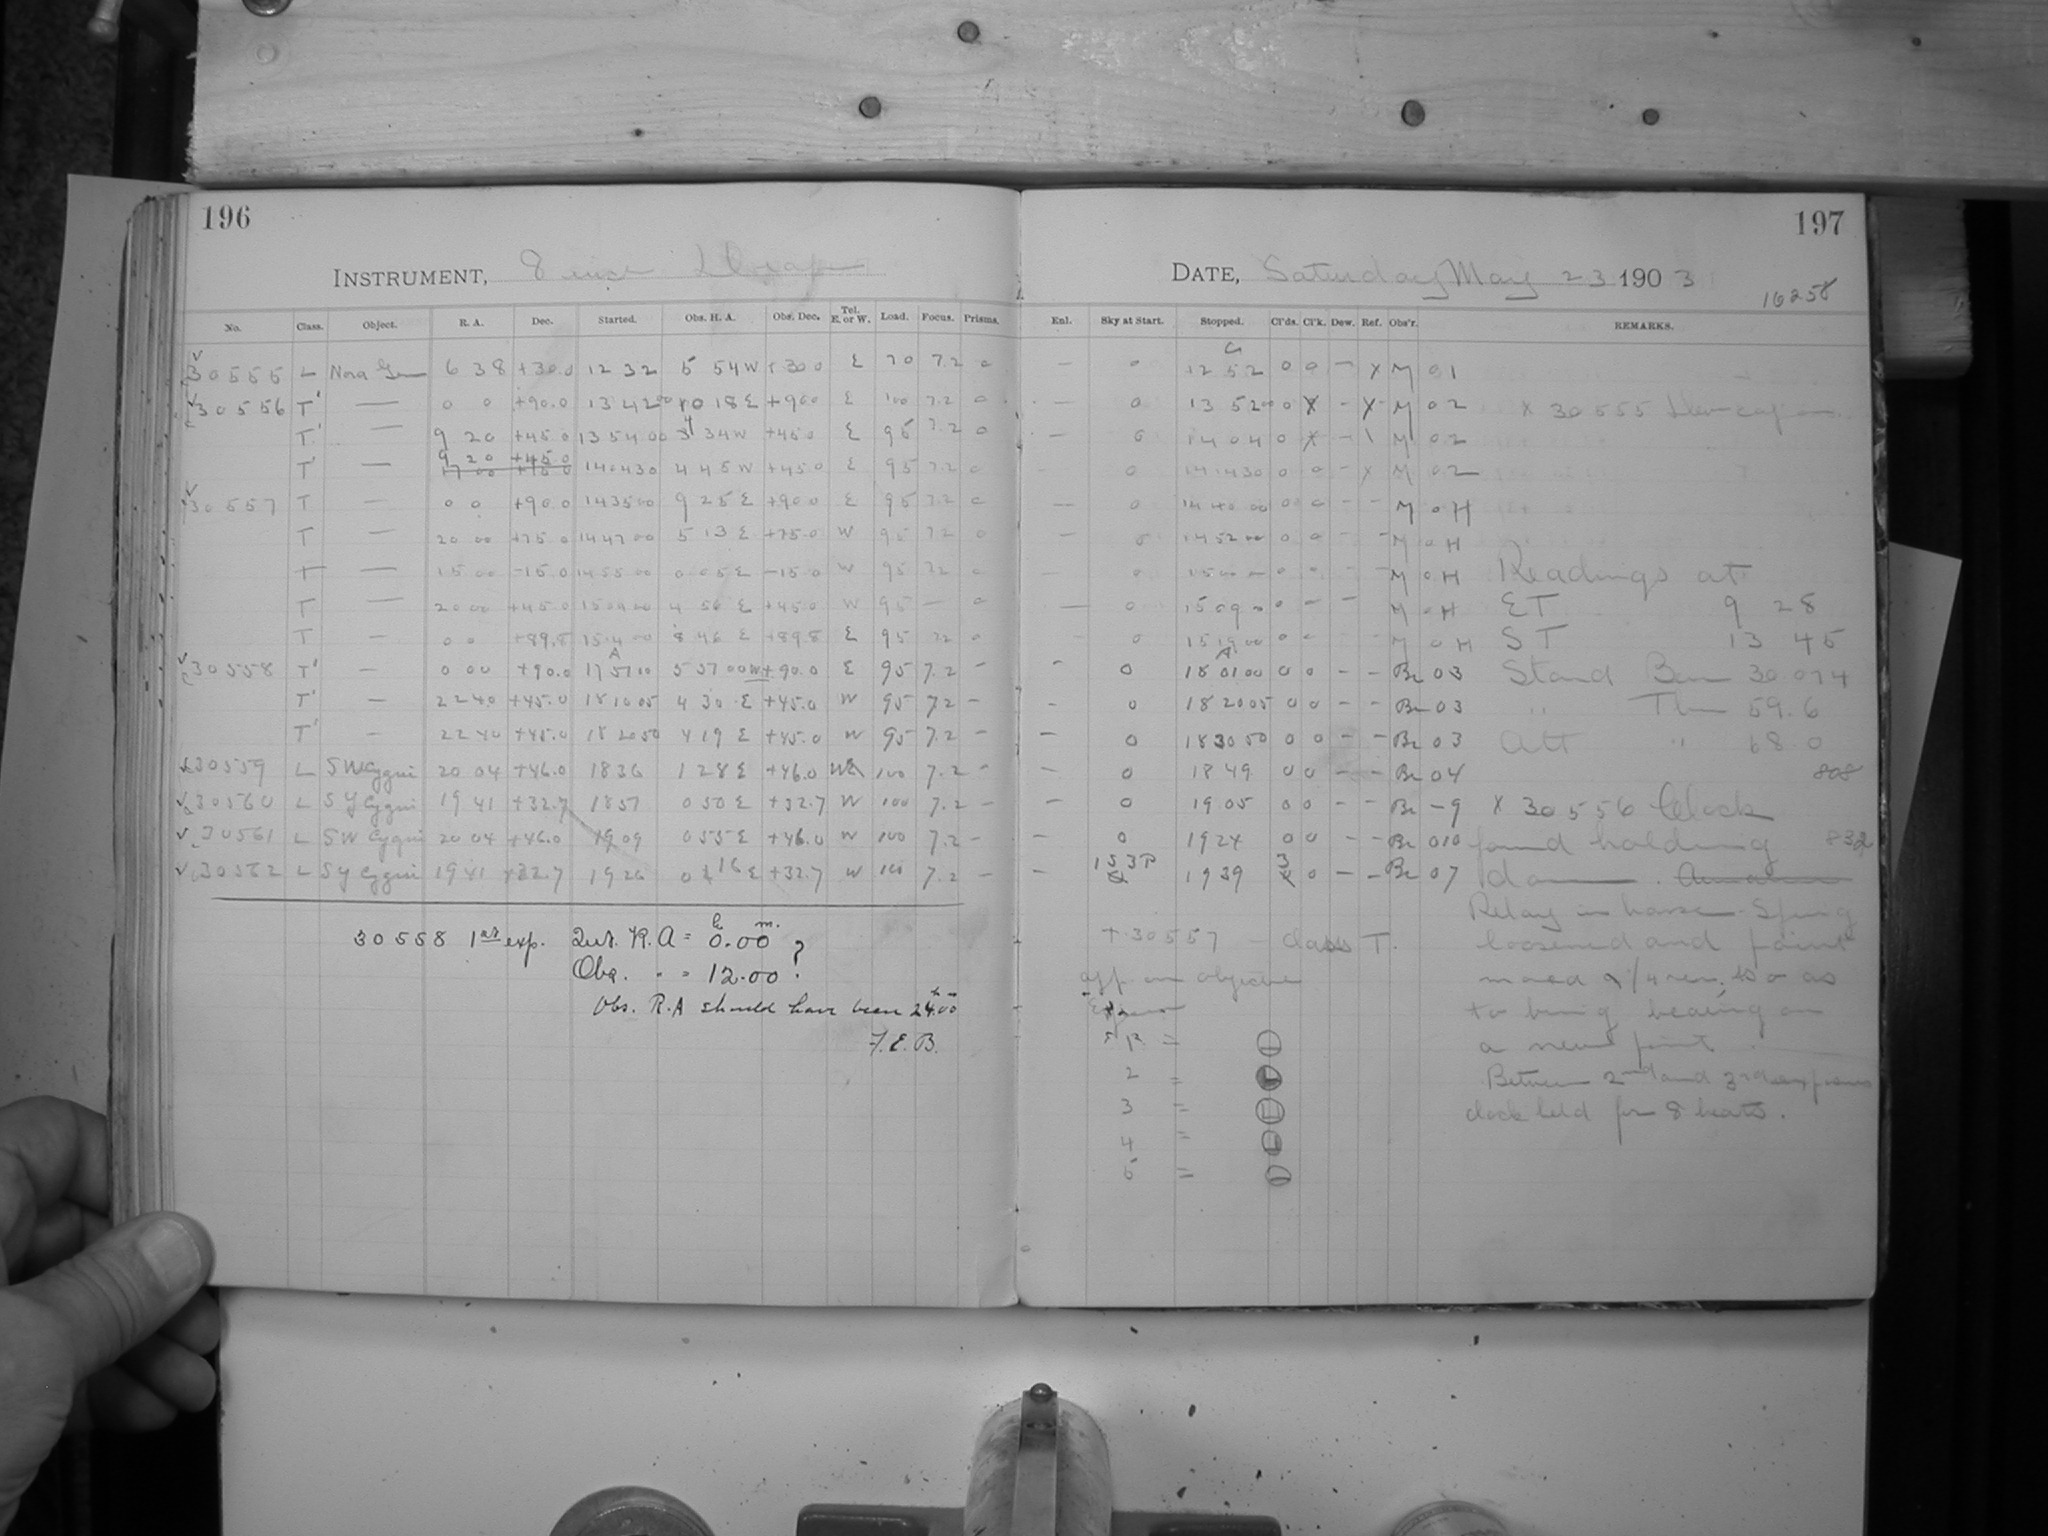 196
197
INSTRUMENT, 8 inch Draper
DATE, Saturday May 23 1903
16258
No. Class. Object. R. A. Dec. Started. Obs. H. A. Obs. Dec. Tel. E. or W. Load. Focus. Prisms. Enl. Sky at Start. Stopped. Cl'ds. Cl'k. Dew. Ref. Obs'r. REMARKS.
30555 L Nova Gem 6 38 +30.0 12 32 5 54 W +30 0 E 70 7.2 0 — 0 12 52 0 0 – X M 01
30556 T' — 0 0 +90.0 13 42 00 10 18 E +90 0 E 100 7.2 0 0 13 52 00 0 X – X M 02 X 30555 Dew cap on
T' — 9 20 +45.0 13 54 00 34 W +45.0 E 95 7.2 0 — 0 14 04 0 X – M 02
T' — 9 20 +45.0 14 04 30 4 45 W +45.0 E 95 7.2 0 0 14 14 30 0 0 – X M 02
30557 T — 0 0 +90.0 14 35 00 9 25 E +90.0 E 95 7.2 0 — 0 14 40 00 0 0 – – M 0H
T — 20 00 +75.0 14 47 00 5 13 E +75.0 W 95 7.2 0 — 0 14 52 00 0 0 – – M 0H
T — 15 00 -15.0 14 55 00 0 05 E -15.0 W 95 7.2 0 0 15 00 M 0H Readings at
T — 20 00 +45.0 4 56 E +45.0 W 95 — 0 — 0 15 09 0 – – M 0H ET 9 28
T — 0 0 +89.8 8 46 E +89.8 E 95 7.2 0 0 15 19 00 0 0 M 0H ST 13 45
30558 T' — 0 00 +90.0 17 57 00 5 57 00 W +90.0 E 95 7.2 – – 0 18 01 00 0 0 – – Br 03 Stand Bar 30.074
T' — 22 40 +45.0 18 10 05 4 30 E +45.0 W 95 7.2 – – 0 18 20 05 0 0 – – Br 03 " Ther 59.6
T' — 22 40 +45.0 18 20 50 4 19 E +45.0 W 95 7.2 – – 0 18 30 50 0 0 – – Br 03 Att " 68.0
30559 L SW Cygni 20 04 +46.0 18 36 1 28 E +46.0 W 100 7.2 – – 0 18 49 0 0 – – Br 04 808
30560 L SY Cygni 19 41 +32.7 18 57 0 50 E +32.7 W 100 7.2 – – 0 19 05 0 0 – – Br –9 X 30556 Clock
30561 L SW Cygni 20 04 +46.0 19 09 0 55 E +46.0 W 100 7.2 – – 0 19 24 0 0 – – Br 010 found holding 832
30562 L SY Cygni 19 41 +32.7 19 26 0 16 E +32.7 W 100 7.2 – – 153P 19 39 3 0 – – Br 07
Relay in house. Spring
30558 1st exp. Int. R. A = 0h.00m ?
+ 30557 – class T. loosened and point
Obs. " " 12.00
off on objective moved 1/4 rev. so as
Obs. R.A should have been 24h00m
to bring bearing on
F. E. B.
1 = a new point
2 = Between 2nd and 3rd exposures
3 = clock held for 8 beats.
4 =
5 =